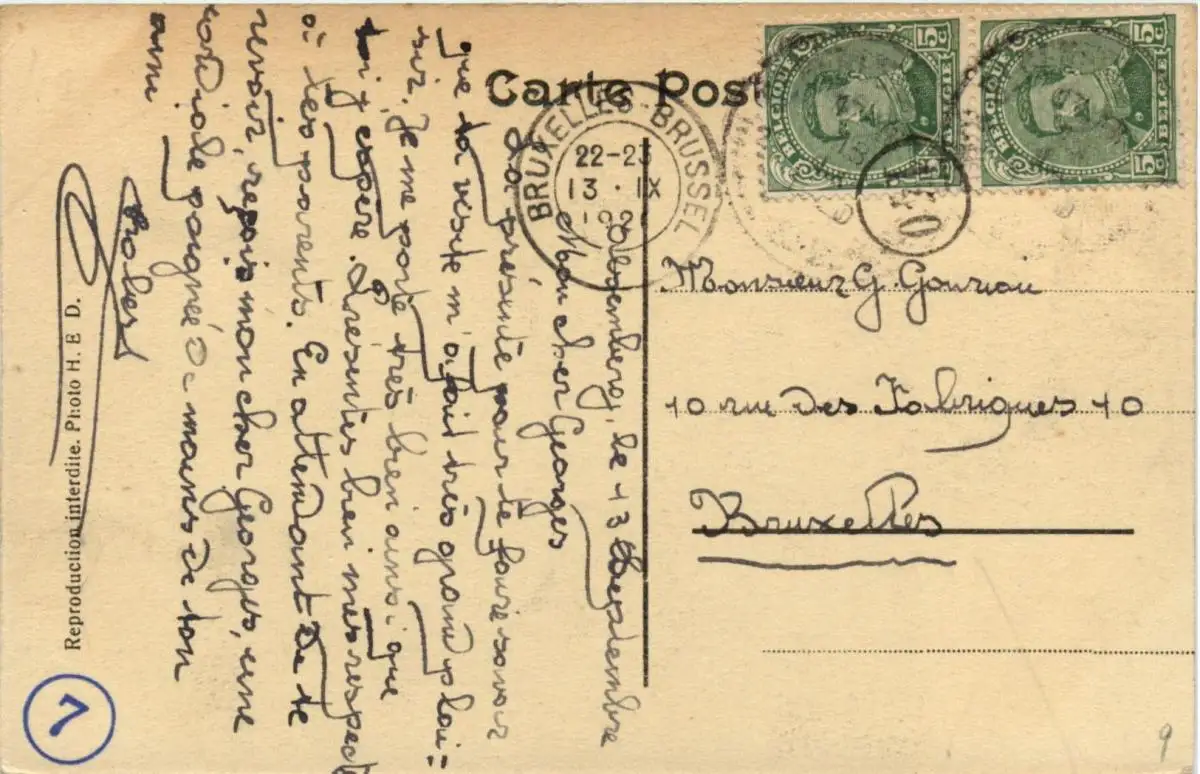 Carte Post
BELGIQUE 5c 5c BELGIE
BELGIQUE 5c 5c BELGIE
BRUXELLES-BRUSSEL
22-23
13 · IX
Calvenberg, le 13 Septembre
Mon cher Georges
La présente pour te faire savoir
que ta visite m'a fait très grand plai=
sir. Je me porte très bien ainsi que
toi j'espère. Présentes bien mes respects
à tes parents. En attendant de te
revoir, reçois mon cher Georges, une
cordiale poignée de mains de ton
ami
Robert
Monsieur G. Gouriou
10 rue des Fabriques 10
Bruxelles
Reproduction interdite. Photo H. E D.
7
9